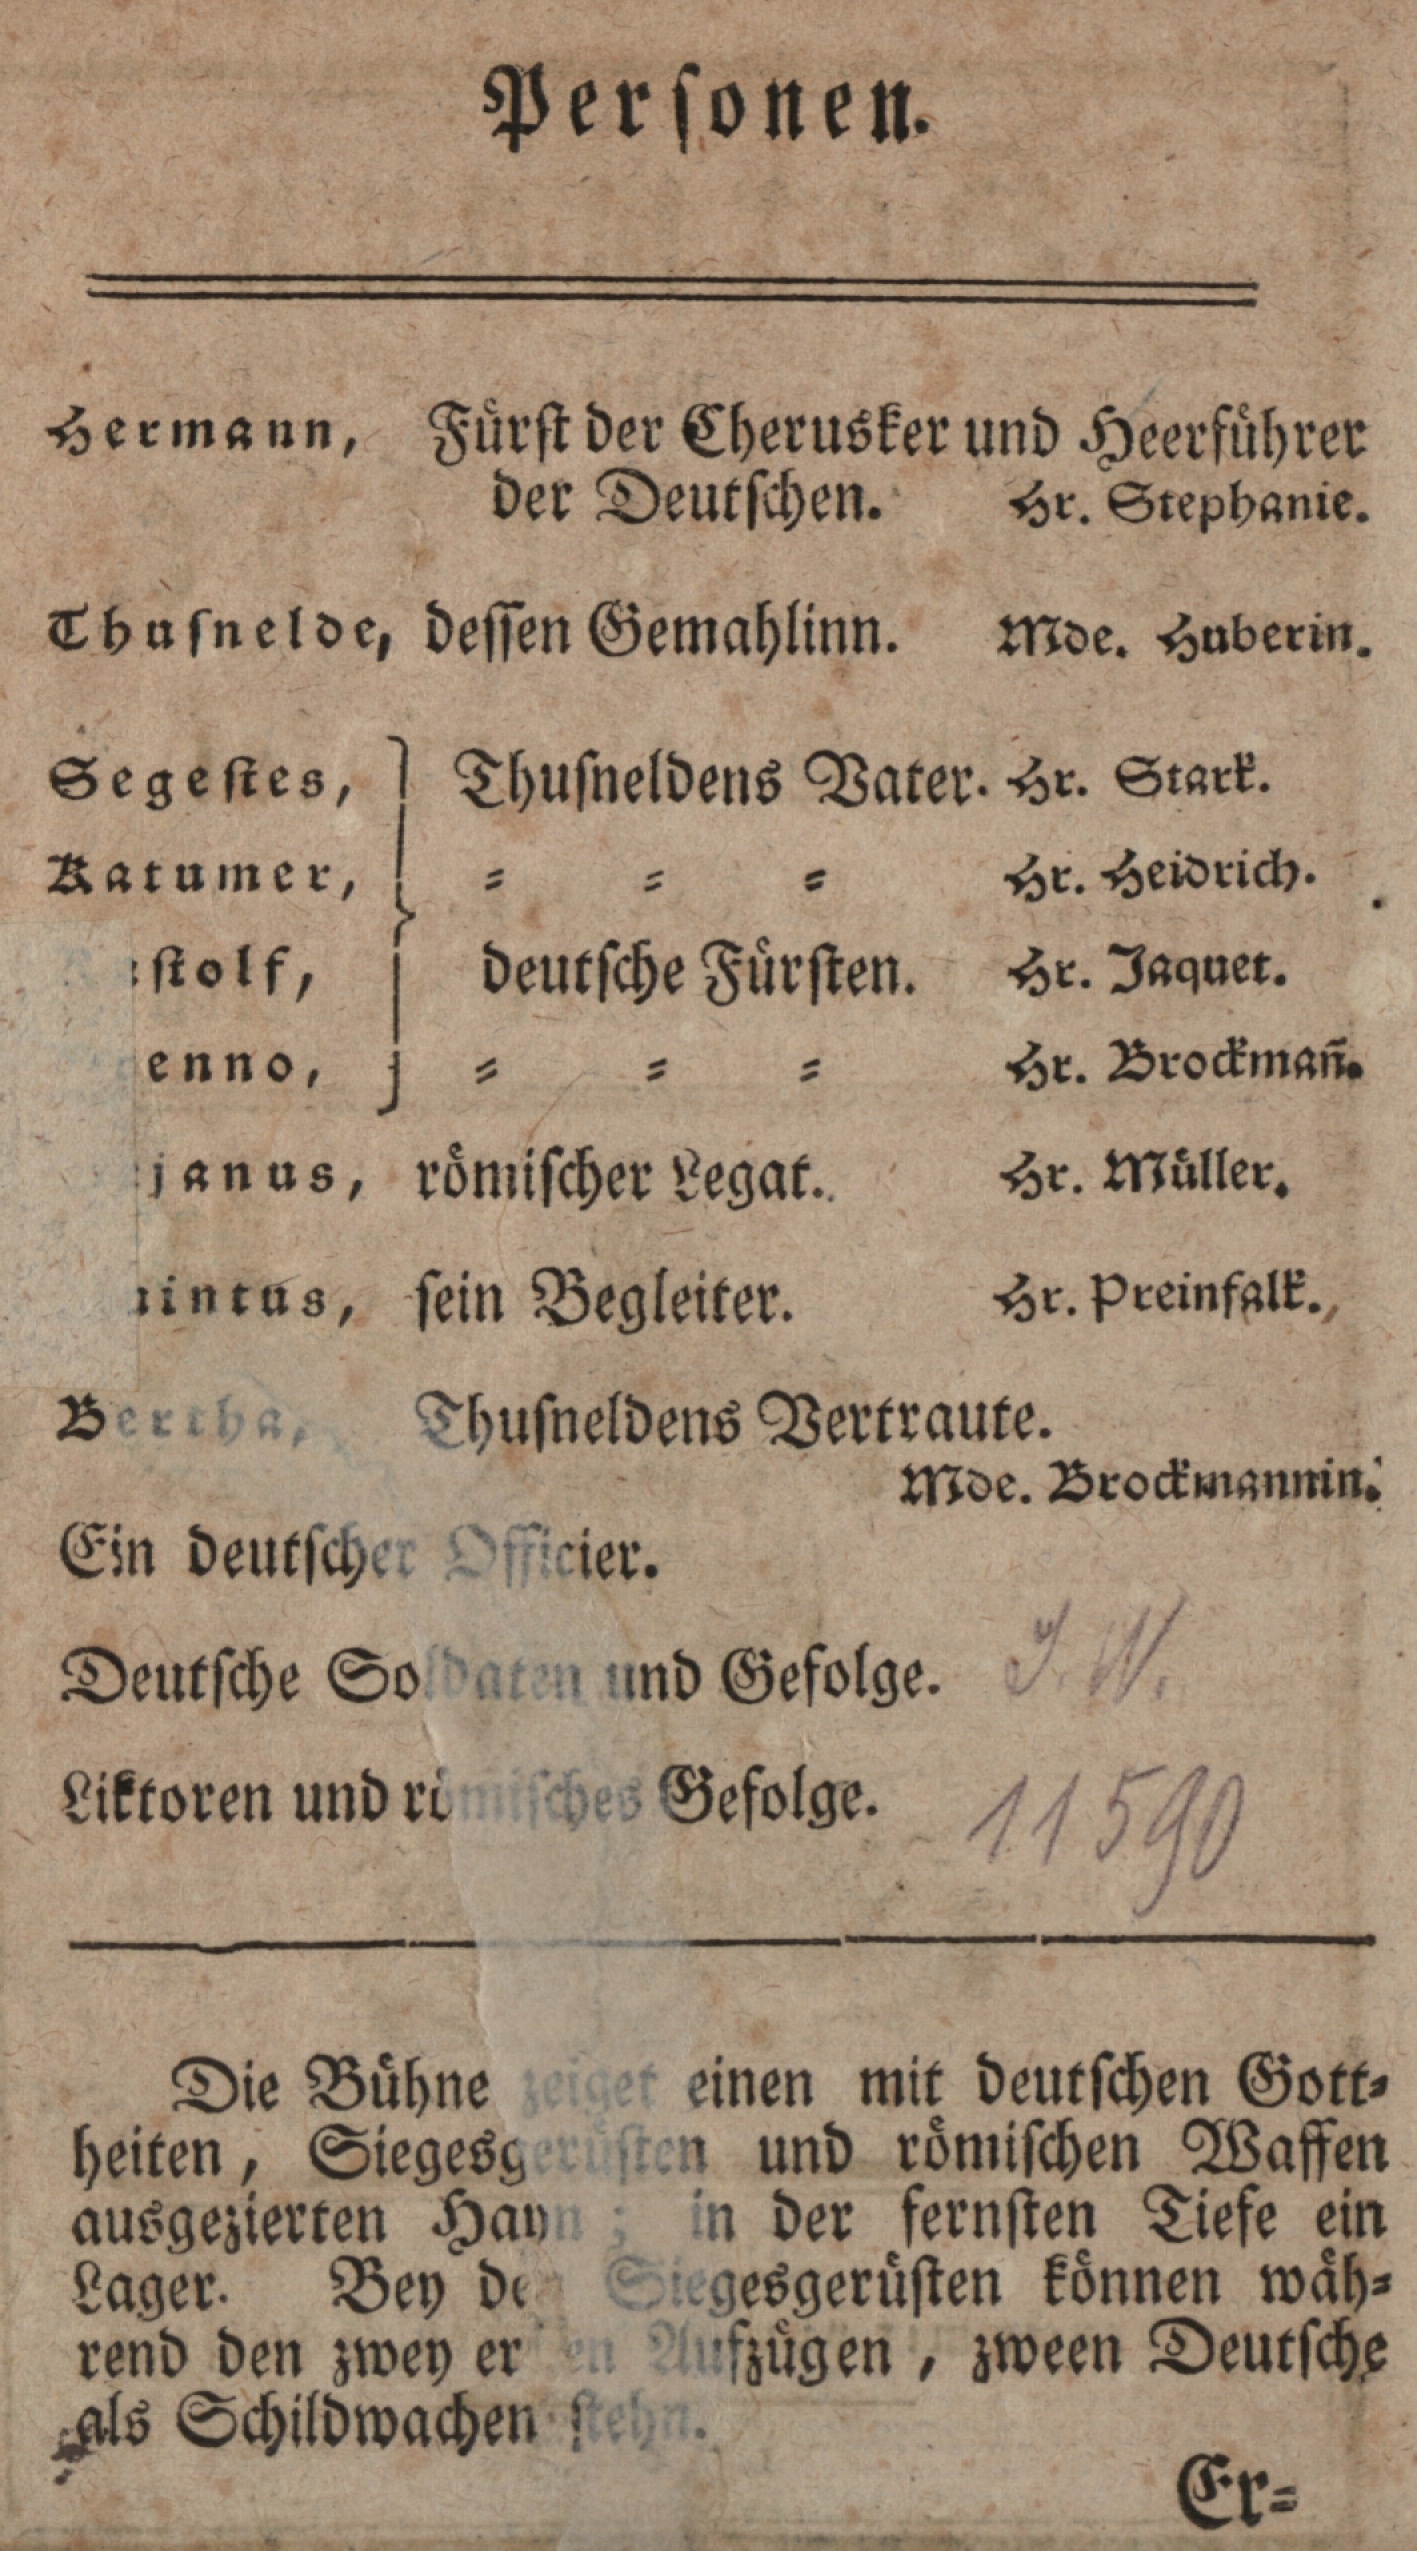 Personen.
Hermann, Fürst der Cherusker und Heerführer
der Deutschen. Hr. Stephanie.
Thusnelde, dessen Gemahlinn. Mde. Huberin.
Segestes, Thusneldens Vater. Hr. Stark.
Katumer, = = = Hr. Heidrich.
deutsche Fürsten. Hr. Jaquet.
= = = Hr. Brockman̄.
römischer Legat. Hr. Müller.
sein Begleiter. Hr. Preinfalk.
Bertha, Thusneldens Vertraute.
Mde. Brockmannin.
Ein deutscher Officier.
Deutsche Soldaten und Gefolge. J. W.
Liktoren und römisches Gefolge. 11590
Die Bühne zeiget einen mit deutschen Gott=
heiten, Siegesgerüsten und römischen Waffen
ausgezierten Hayn; in der fernsten Tiefe ein
Lager. Bey den Siegesgerüsten können wäh=
rend den zwey ersten Aufzügen, zween Deutsche
als Schildwachen stehn.
Er=